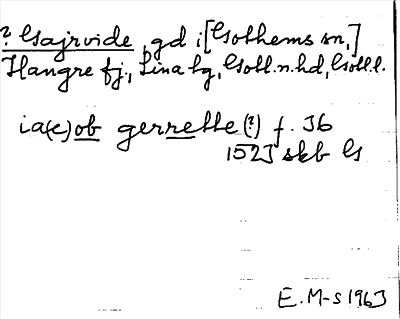 ? Gajrvide, gd i [Gothems sn,]
Hangre fj., Lina tg, Gotl.n.hd, Gotl.l.
ia(c)ob gerrette (?) f. 36
1523 skb G
E. M-s 1963